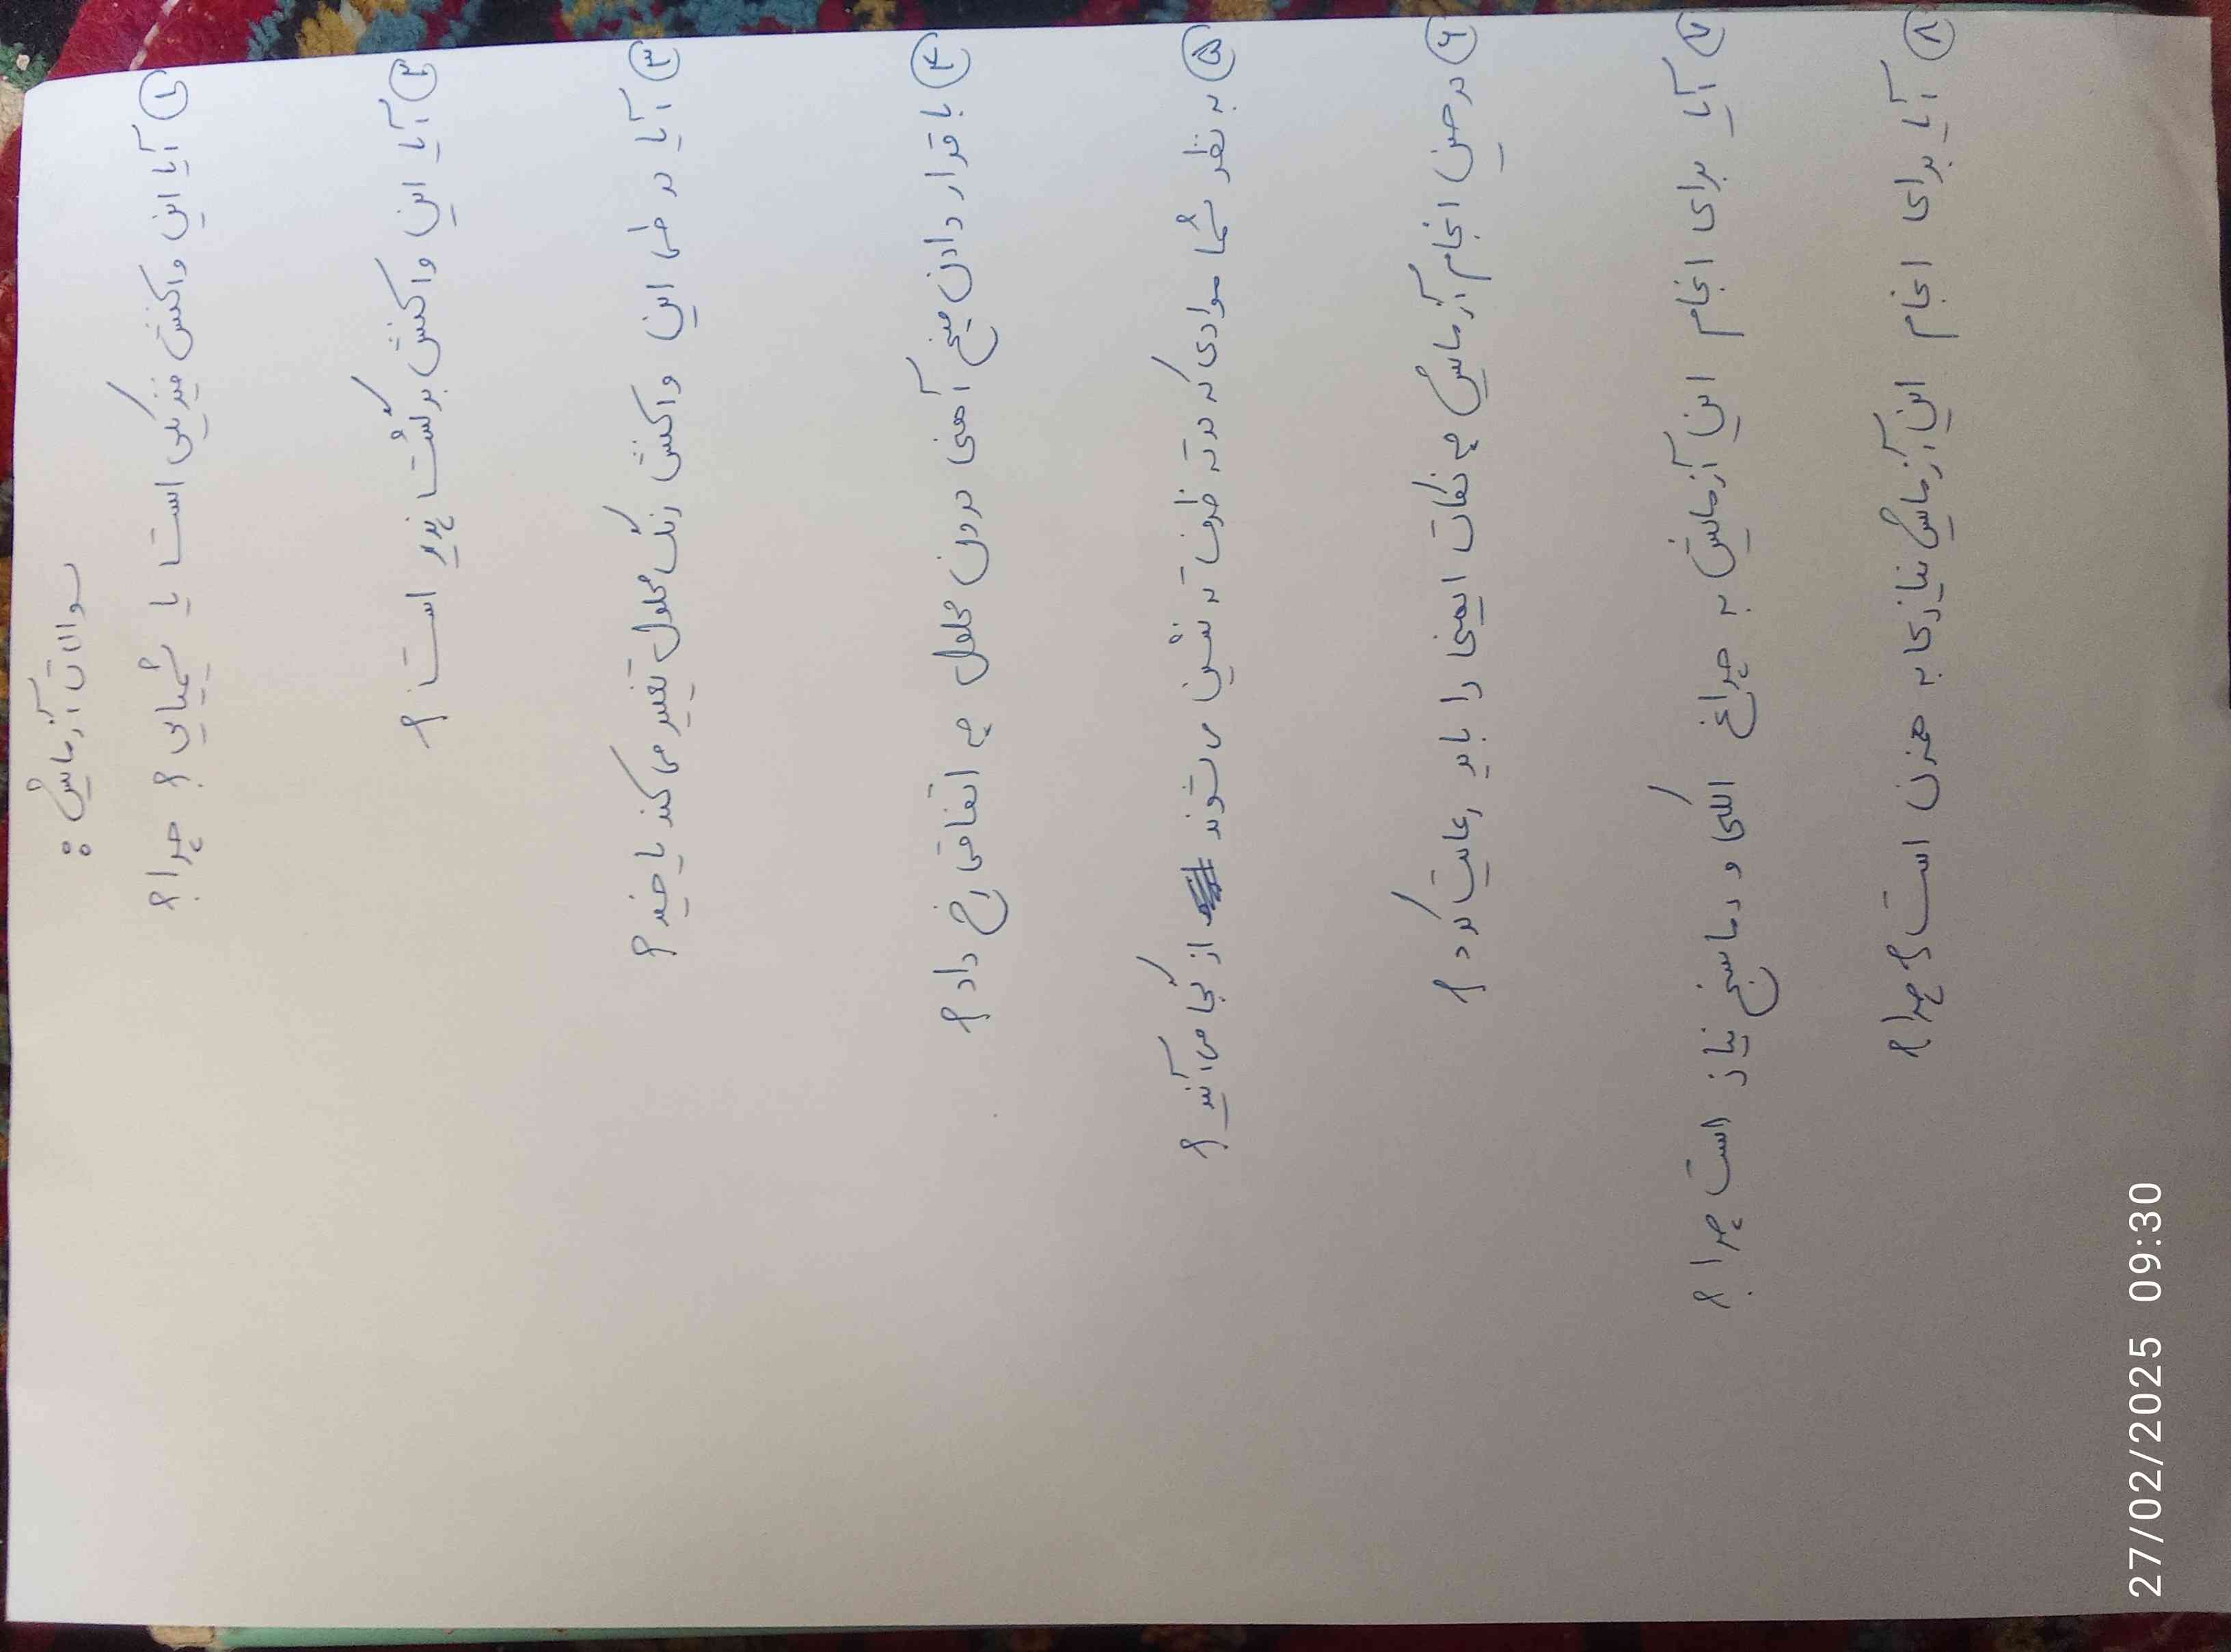 سوالات آزمایش :
① آیا این واکنش فیزیکی است یا شیمیایی ؟ چرا ؟
② آیا این واکنش برگشت پذیر است ؟
③ آیا در طی این واکنش رنگ محلول تغییر می کند یا خیر ؟
④ با قرار دادن میخ آهنی درون محلول چه اتفاقی رخ داد ؟
⑤ به نظر شما موادی که در ته ظرف ته نشین می شوند از کجا می آیند ؟
⑥ در حین انجام آزمایش چه نکات ایمنی را باید رعایت کرد ؟
⑦ آیا برای انجام این آزمایش به چراغ الکی و دماسنج نیاز است چرا ؟
⑧ آیا برای انجام این آزمایش نیازی به همزن است ؟ چرا ؟
27/02/2025 09:30